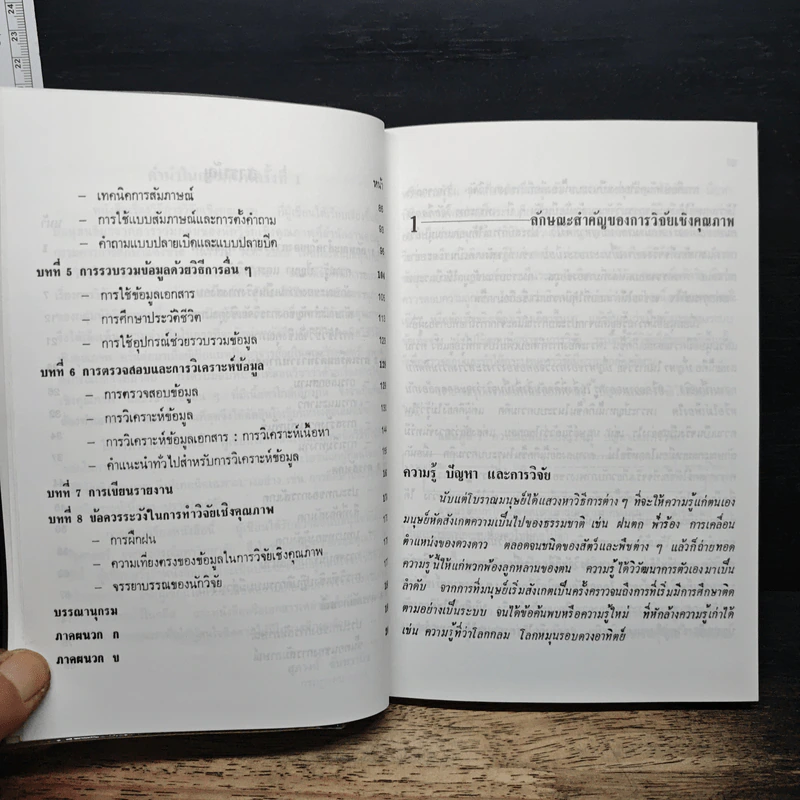 24
23
22
หน้า
– เทคนิคการสัมภาษณ์
– การใช้แบบสัมภาษณ์และการตั้งคำถาม
– คำถามแบบปลายเปิดและแบบปลายปิด
บทที่ 5 การรวบรวมข้อมูลด้วยวิธีการอื่น ๆ
– การใช้ข้อมูลเอกสาร
– การศึกษาประวัติชีวิต
– การใช้อุปกรณ์ช่วยรวบรวมข้อมูล
บทที่ 6 การตรวจสอบและการวิเคราะห์ข้อมูล
– การตรวจสอบข้อมูล
– การวิเคราะห์ข้อมูล
– การวิเคราะห์ข้อมูลเอกสาร : การวิเคราะห์เนื้อหา
– คำแนะนำทั่วไปสำหรับการวิเคราะห์ข้อมูล
บทที่ 7 การเขียนรายงาน
บทที่ 8 ข้อควรระวังในการทำวิจัยเชิงคุณภาพ
– การฝึกฝน
– ความเที่ยงตรงของข้อมูลในการวิจัยเชิงคุณภาพ
– จรรยาบรรณของนักวิจัย
บรรณานุกรม
ภาคผนวก ก
ภาคผนวก ข
1 ลักษณะสำคัญของการวิจัยเชิงคุณภาพ
ความรู้ ปัญหา และการวิจัย
นับแต่โบราณมนุษย์ได้แสวงหาวิธีการต่าง ๆ ที่จะให้ความรู้แก่ตนเอง
มนุษย์หัดสังเกตความเป็นไปของธรรมชาติ เช่น ฝนตก ฟ้าร้อง การเคลื่อน
ตำแหน่งของดวงดาว ตลอดจนชนิดของสัตว์และพืชต่าง ๆ แล้วก็ถ่ายทอด
ความรู้นี้ให้แก่พวกพ้องลูกหลานของตน ความรู้ได้วิวัฒนาการตัวเองมาเป็น
ลำดับ จากการที่มนุษย์เริ่มสังเกตเป็นครั้งคราวจนถึงการที่เริ่มมีการศึกษาติด
ตามอย่างเป็นระบบ จนได้ข้อค้นพบหรือความรู้ใหม่ ที่หักล้างความรู้เก่าได้
เช่น ความรู้ที่ว่าโลกกลม โลกหมุนรอบดวงอาทิตย์